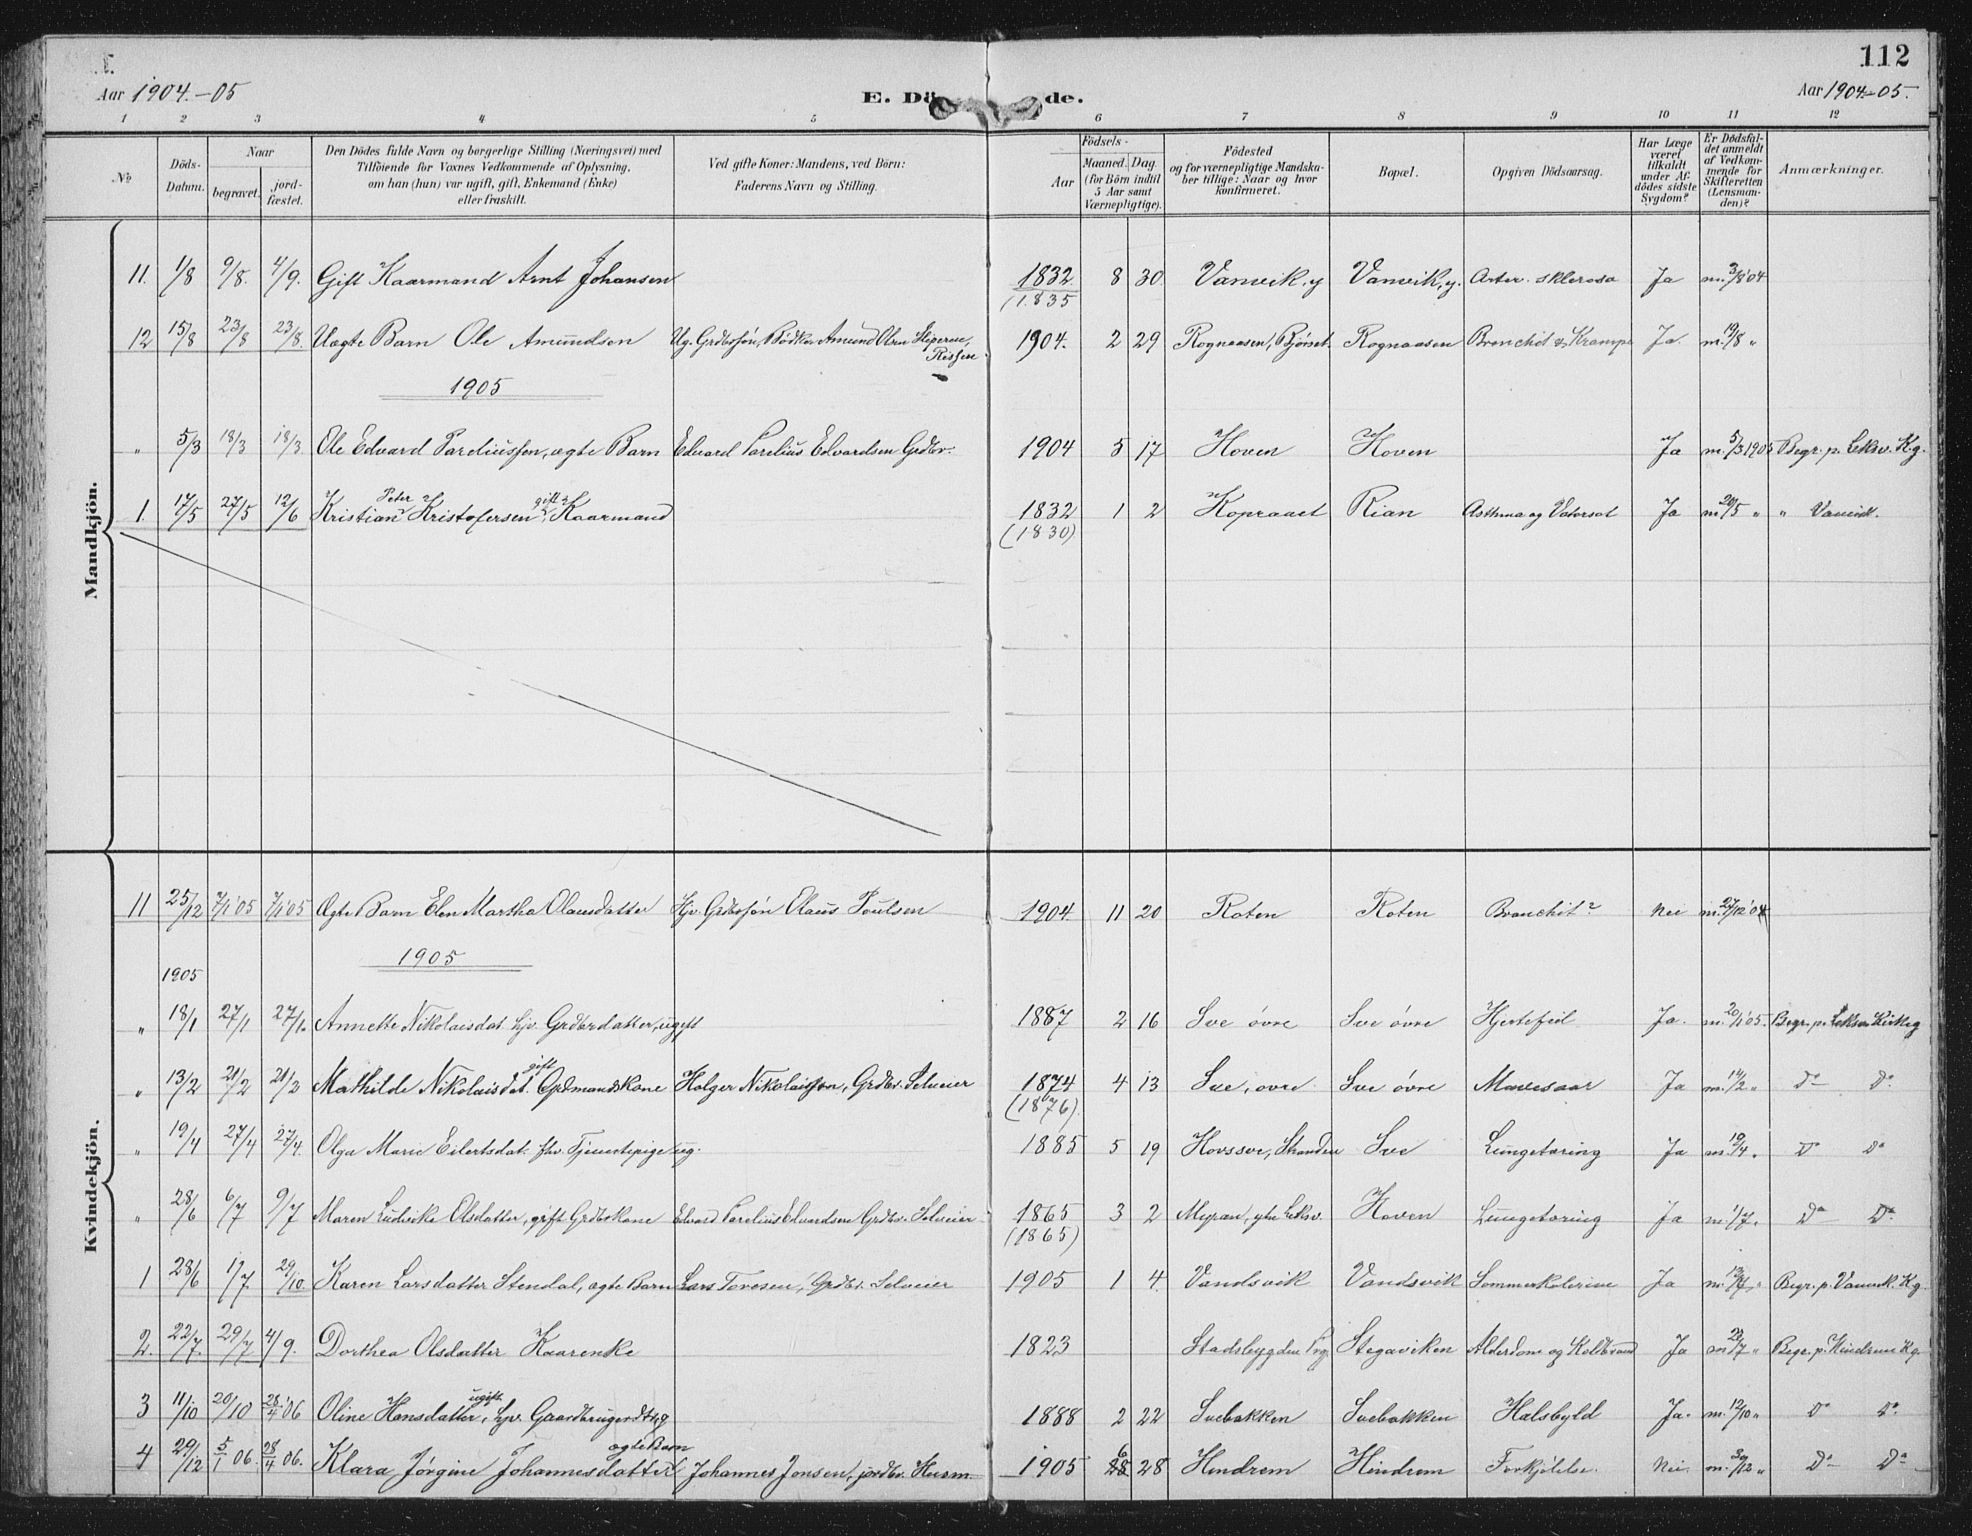 112
Aar 1904.-05
E. Dö de.
Aar 1904-05.
1 2 3 4 5 6 7 8 9 10 11 12
No
Döds-Datum.
Naar
begravet.
jord-fæstet.
Den Dödes fulde Navn og borgerlige Stilling (Næringsvei) med
Tilföiende for Voxnes Vedkommende af Oplysning,
om han (hun) var ugift, gift, Enkemand (Enke)
eller fraskilt.
Ved gifte Koner: Mandens, ved Börn:
Faderens Navn og Stilling.
Födsels-
Aar
Maaned. Dag.
(for Börn indtil
5 Aar samt
Værnepligtige).
Födested
og for værnepligtige Mandska-
ber tillige: Naar og hvor
konfirmeret.
Bopæl.
Opgiven Dödsaarsag.
Har Læge
været
tilkaldt
under Af-
dödes sidste
Sygdom?
Er Dödsfal-
det anmeldt
af Vedkom-
mende for
Skifteretten
(Lensman-
den)?
Anmærkninger.
Mandkjön.
11. 1/8 9/8. 4/9. Gift Kaarmand Arnt Johansen 1832 8 30 Vanvik, y Vanvik, y. Arter. sklerosa Ja m. 3/8 04
(1835
12 15/8 23/8 23/8. Uægte Barn Ole Amundsen Ug. Grdbrsøn, Bødker Amund Olsen 1904. 2 29 Rognaasen, Bjørset Rognaasen Bronchit & Krampe Ja. m. 19/8 "
Rissen
1905
" 5/3 18/3 18/3 Ole Edvard Pareliussen, ægte Barn Edvard Parelius Edvardsen Grdbr. 1904 5 17 Hoven Hoven Ja m. 5/3 1905 Begr. p. Leksv. Kg.
1. 17/5 27/5 12/6 Kristian Peter Kristofersen gift Kaarmand 1832 1 2 Kopraaet Rian Asthma og Vatersot Ja m. 20/5 " " Vanvik.
(1830)
Kvindekjön.
11 25/12 7/1 05 7/1 05 Ægte Barn Elen Martha Olausdatter Hjv. Grdbrsøn Olaus Poulsen 1904. 11 20 Roten Roten Bronchit? Nei m. 27/12 04
1905
1905
" 18/1 27/1 27/1. Annette Nikolaisdat. hjv. Grdbrdatter, ugift 1887 2 16 Sve øvre Sve øvre Hjertefeil Ja. m. 20/1 05. Begr. p. Leksv. Kirkeg
" 13/2 21/2 21/2 Mathilde Nikolaisdat. gift Grdmandskone Holger Nikolaissen, Grdbr. Selveier 1874 4 13 Sve, øvre Sve øvre Mavesaar Ja m. 14/2 " Do Do.
(1876).
" 19/4 27/4 27/4. Olga Marie Eilertsdat. fhv. Tjenestepige ug. 1885 5 19 Hovssve, Stranden Sve Lungetæring Ja m. 19/4 " Do Do
" 28/6 6/7 9/7 Maren Ludvika Olsdatter, gift Grdbrkone Edvard Parelius Edvardsen Grdbr. Selveier 1865 3 2 Myran, ytre Leksv. Hoven Lungetæring Ja m. 1/7. Do Do.
(1865)
1 28/6 1/7 29/10. Karen Larsdatter Stendal, ægte Barn Lars Toresen, Grdbr. Selveier 1905 1 4. Vandsvik Vandsvik Sommerkolerine Ja Begr. p. Vanvik. Kg.
2. 22/7. 29/7 4/9. Dorthea Olsdatter Kaarenke 1823 Stadsbygden Prg. Stegaviken Alderdom og Koldbrand Ja Begr. p. Hindrem Kg.
3 11/10 20/10 28/4 06 Oline Hansdatter, ugift, hjv. Gaardbrugerdt 1888 2 22 Svebakken Svebakken Halsbyld Ja. m. 12/10 " Do Do.
4 29/12 5/1 06. 28/4 06. Klara Jørgine Johannesdatter ægte Barn Johannes Jonsen, jordbr. Husm. 1905 6 28 Hindrem Hindrem Forkjølelse. Nei. m. 30/12 " Do Do